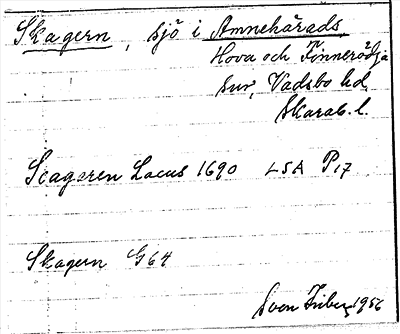 Skagern, sjö i Amnehärads
Hova och Finnerödja
snr, Vadsbo hd,
Skarab. l.
Scageren Lacus 1690 LSA P17
Skagern G64
Sven Friberg 1956